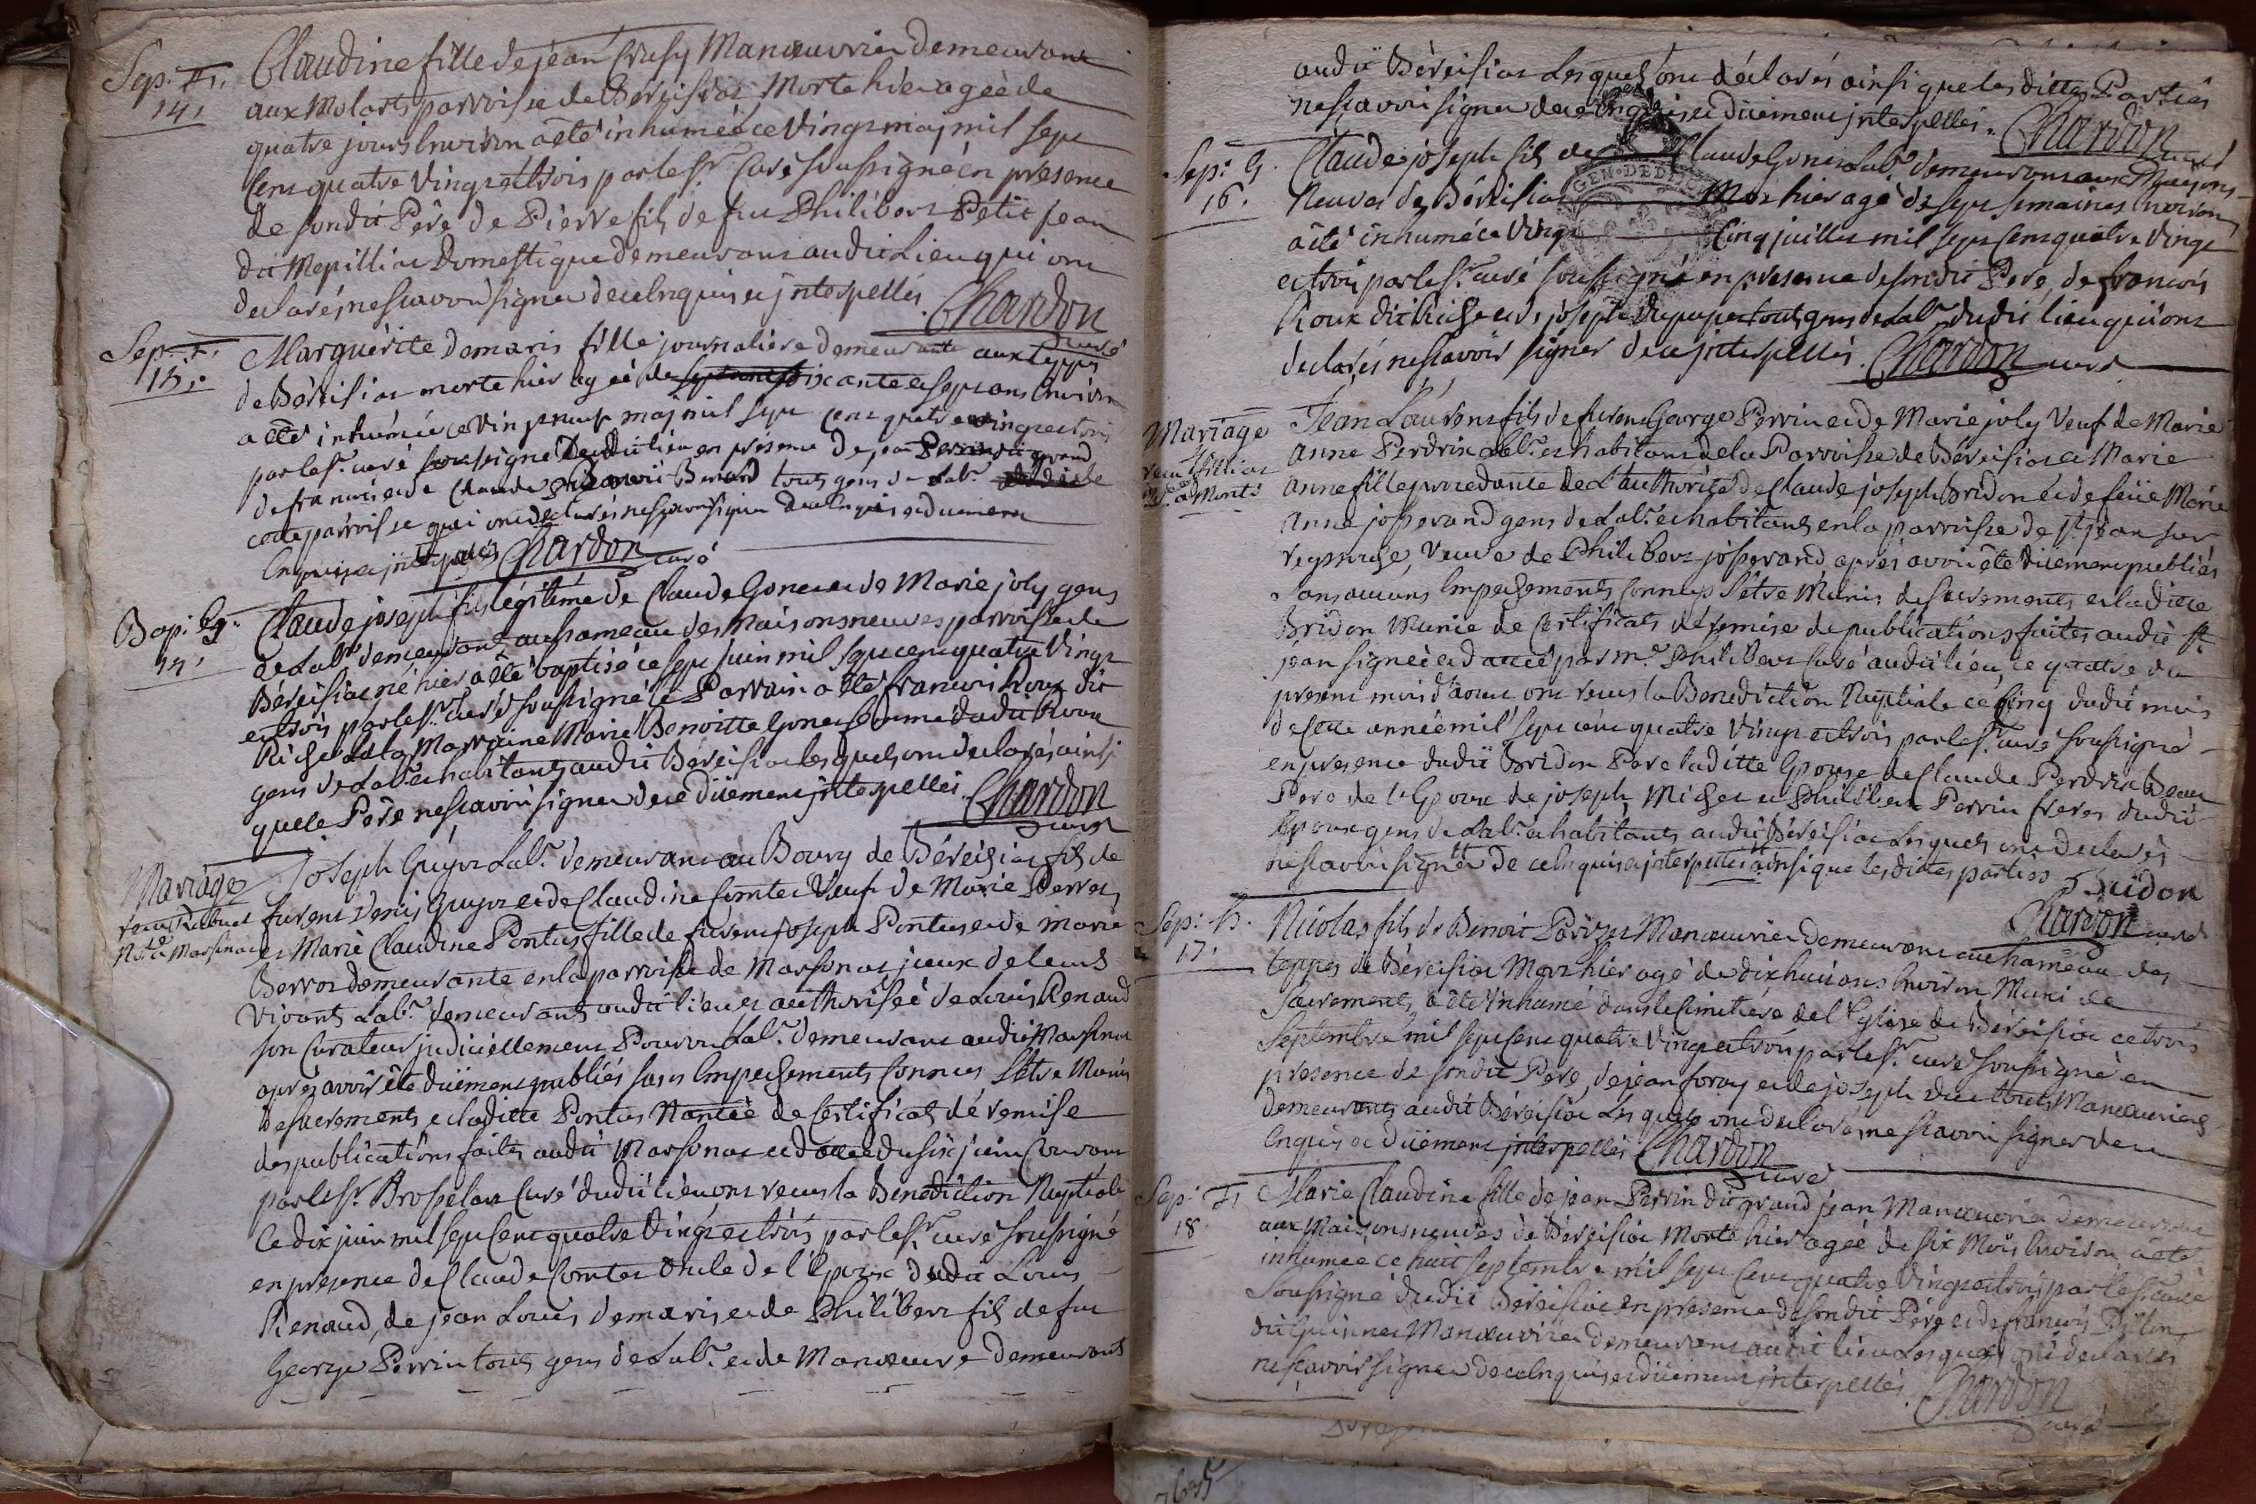 Sep. F.
14.
Claudine fille de jean Manœuvrier demeurant
aux Molards parroisse de Béréisiat Morte hier agée de
quatre jours Environ a eté inhumée ce Vingt maj mil sept
Cent quatre Vingt et trois par le Sr. Curé soussigné en presence
de sondit Pere de Pierre fils de fut Philibert Petit jean
dit Mepilliat Domestique demeurant audit Lieu qui ont
declarés ne scavoir signer de ce Enquis et jnterpellés. Chardon
curé
Sep. F.
15.
Marguérite Demaris fille journaliere demeurante aux teppes
de Béréisiat morte hier agée de soixante et sept ans Environ
a eté inhumée ce vingt neuf maj mil sept cent quatre vingt et trois
par le Sr. curé soussigné dudit lieu en présence de jean Perrin dit grand
de francois et de Claude Benard touts gens de Lab.r de
cette parroisse qui ont declarés ne scavoir signer de ce Enquis et duement
Enquis et jnterpellés Chardon curé
Bap: G.
14.
Claude joseph fils légitime de Claude Gonet et de Marie joly gens
de Lab.r demeurants au hameau des Maisons neuves parroisse de
Béréisiat né hier a été baptisé ce sept juin mil sept cent quatre Vingt
et trois par le Sr. curé soussigné le Parrain a eté francois Roux dit
Riche et la Marraine Marie Benoitte Gonet femme dudit Roux
gens de Lab.r et habitants audit Béréisiat lesquels ont declarés ainsi
que le Pere ne scavoir signer de ce dûement jnterpellés. Chardon
curé
Mariage
Joseph Guyot Lab.r demeurant au Bourg de Béréisiat fils de
furent Denis Guyot et de Claudine Comtet Veuf de Marie Perret
et Marie Claudine Pontus fille de furent joseph Pontus et de marie
Berrod demeurante en la parroisse de Marsonas jceux de leurs
Vivants Lab.r demeurants audit lieu et authorisée de Louis Renaud
son Curateur judiciellement Pourvu Lab.r demeurant audit Marsonas
aprés avoir été dûement publiés sans Empechements Connus S'etre Munis
de sacrements et laditte Pontus Nantie de Certificat dé remise
des publications faites audit Marsonas et datté du six juin Courant
par le Sr. Brosselard Curé dudit lieu ont recus la Benediction Nuptiale
Ce dix juin mil sept Cent quatre Vingt et trois par le Sr. curé soussigné
en presence de Claude Comtet Oncle de l'Epoux dudit Louis
Renaud, de jean Louis demaris et de Philibert fils de fut
George Perrin touts gens de Lab.r et de Manœuvre demeurants
audit Béréisiat Lesquels ont déclarés ainsi que les dittes Parties
ne scavoir signer de ce Enquis et dûement jnterpellés. Chardon
curé
Sep: G.
16.
Claude joseph fils de Claude Gonet Lab.r demeurant aux Maisons
Neuves de Béréisiat Mort hier agé de sept semaines Environ
a eté inhumé ce Vingt Cinq juillet mil sept Cent quatre Vingt
et trois par le Sr. curé soussigné en presence de sondit Pere, de francois
Roux dit Riche et de joseph touts gens de Lab.r dudit lieu qui ont
declarés ne scavoir signer de ce jnterpellés. Chardon curé
Mariage
Jean Laurent fils de furent George Perrin et de Marie joly Veuf de Marie
Anne Perdrix Lab.r et habitant de la Parroisse de Béréisiat et Marie
Anne fille procedante de L'authorité de Claude joseph Bridon et de feüe Marie
Anne josserand gens de Lab.r et habitants en la parroisse de St. jean sur
reyssouze, Veuve de Philibert josserand aprés avoir été dûement publiés
sans aucuns Empechements Connus S'etre Munis de sacrements et laditte
Bridon Munie de Certificat dé remise de publications faites audit St.
jean signée et datté par Mr. Philibert curé audit lieu, le quatre du
present mois d'aout ont recus la Benediction Nuptiale ce Cinq dudit mois
de cette année mil sept cent quatre Vingt et trois par le Sr. curé soussigné
en presence dudit Bridon Pere laditte Epouse de Claude Perdrix Beau
Pere de l'Epoux de joseph Michel et Philibert Perrin freres dudit
Epoux gens de Lab.r et habitants audit Béréisiat Lesquels ont declarés
ne scavoir signer De ce Enquis et jnterpellés ainsi que les dittes parties Bridon
Chardon curé
Sep: G.
17.
Nicolas fils de Benoit Manœuvrier demeurant au hameau des
teppes de Béréisiat Mort hier agé de dix huit ans Environ Muni de
Sacrements, a été Inhumé dans le Cimetiére de l'Eglise de Béréisiat ce trois
Septembre mil sept Cent quatre Vingt et trois par le Sr. curé soussigné en
presence de sondit Pere, de jean foray et de joseph touts Manœuvriers
demeurants audit Béréisiat Lesquels ont declarés ne scavoir signer de ce
Enquis et dûement jnterpellés Chardon
curé
Sep: F.
18
Marie Claudine fille de jean Perrin dit grand jean Manœuvrier demeurant
aux Maisons neuves de Béréisiat Morte hier agée de six Mois Environ a eté
inhumée ce huit septembre mil sept Cent quatre Vingt et trois par le Sr. curé
Soussigné dudit Béréisiat en presence de sondit Pére et de francois
Manœuvrier demeurant audit lieu Lesquels ont declarés
ne scavoir signer de ce Enquis et dûement jnterpellés. Chardon
curé